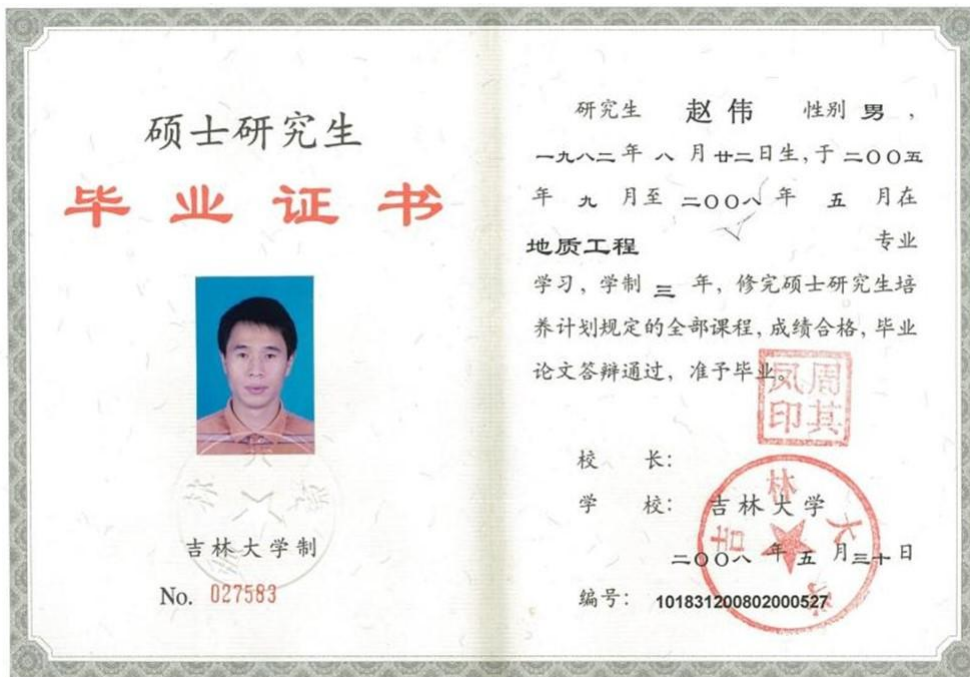 硕士研究生
毕业证书
吉林大学制
No. 027583
研究生 赵伟 性别 男，
一九八二年 八 月廿二日生，于二〇〇五
年 九 月至 二〇〇八 年 五 月在
地质工程 专业
学习，学制 三 年，修完硕士研究生培
养计划规定的全部课程，成绩合格，毕业
论文答辩通过，准予毕业。
周其凤印
校 长：
学 校： 吉林大学
吉林大学
二〇〇八 年 五 月三十日
编号： 101831200802000527